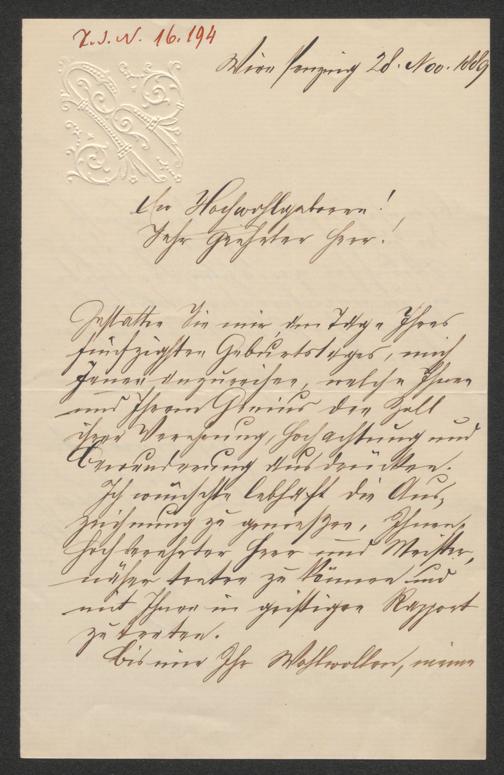 I.N. 16.194
Wien Penzing 28. Nov. 1889
Eu Hochwohlgeboren!
Sehr geehrter Herr!
Gestatten Sie mir, am Tage Ihres
fünfzigsten Geburtstages, mich
Jenen anzureihen, welche Ihnen
und Ihrem Genius den Zoll
ihrer Verehrung, Hochachtung und
Bewunderung ausdrücken.
Ich wünschte lebhaft die Aus-
zeichnung zu genießen, Ihnen,
hochverehrter Herr und Meister,
näher treten zu können und
mit Ihnen in geistigen Rapport
zu treten.
Bis mir Ihr Wohlwollen, meine